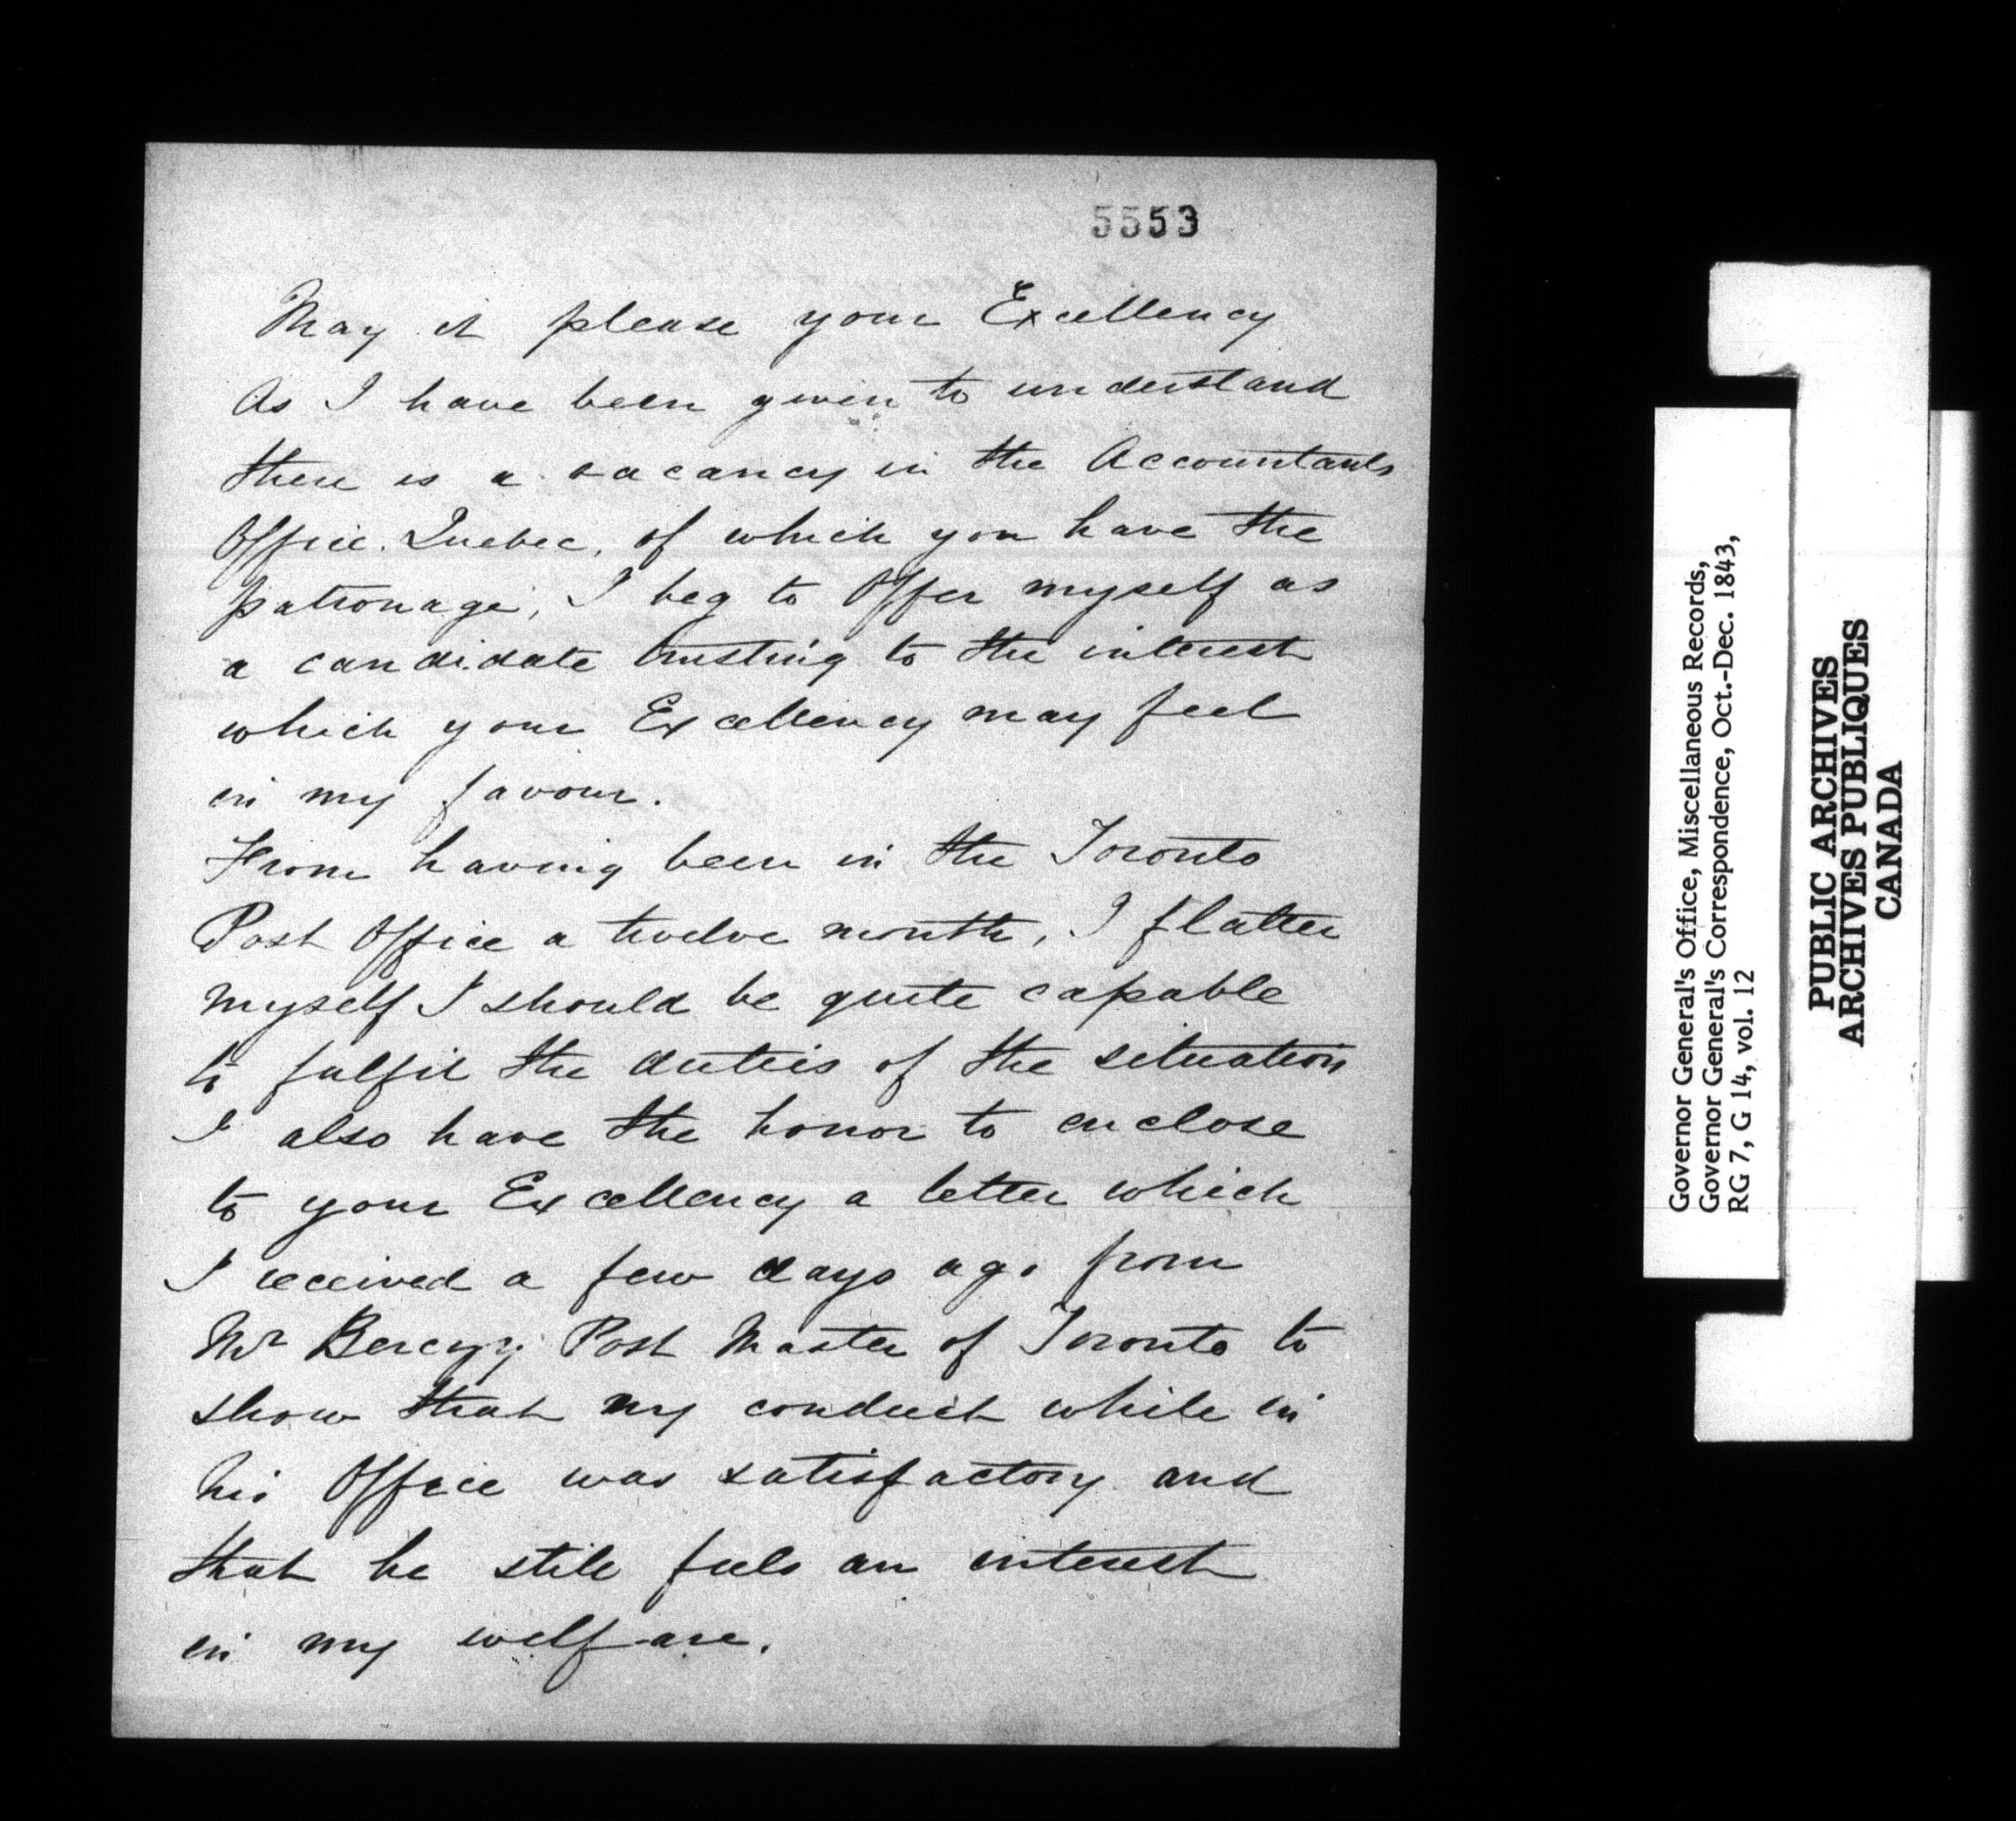 5553
May it please your Excellency
As I have been given to understand
there is a vacancy in the Accountants
Office. Quebec, of which you have the
patronage, I beg to Offer myself as
a candidate trusting to the interest
which your Excellency may feel
in my favour.
From having been in the Toronto
Post Office a twelve month, I flatter
myself I should be quite capable
to fulfil the duties of the situation
I also have the honor to enclose
to your Excellency a letter which
I received a few days ago from
Mr Berczy Post Master of Toronto to
show that my conduct while in
his Office was satisfactory and
that he still feels an interest
in my welfare.
Governor General's Office, Miscellaneous Records,
Governor General's Correspondence, Oct.-Dec. 1843,
RG 7, G 14, vol. 12
PUBLIC ARCHIVES
ARCHIVES PUBLIQUES
CANADA